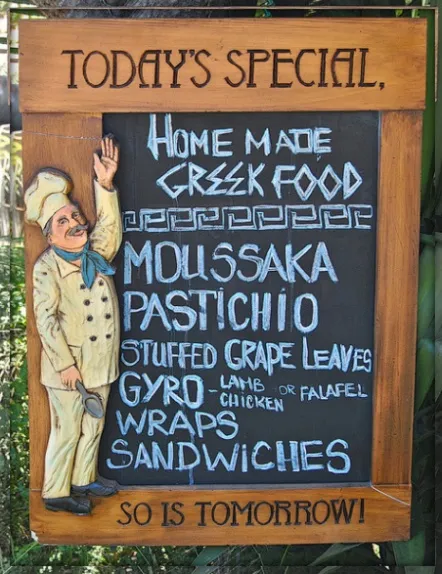 TODAY'S SPECIAL,
HOME MADE
GREEK FOOD
MOUSSAKA
PASTICHIO
STUFFED GRAPE LEAVES
GYRO - LAMB OR FALAFEL
CHICKEN
WRAPS
SANDWICHES
SO IS TOMORROW!